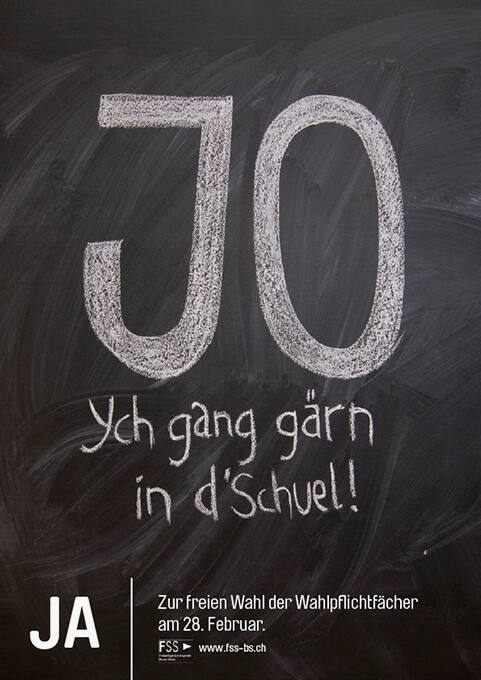 JO
Ych gang gärn
in d'Schuel!
JA
Zur freien Wahl der Wahlpflichtfächer
am 28. Februar.
FSS
www.fss-bs.ch